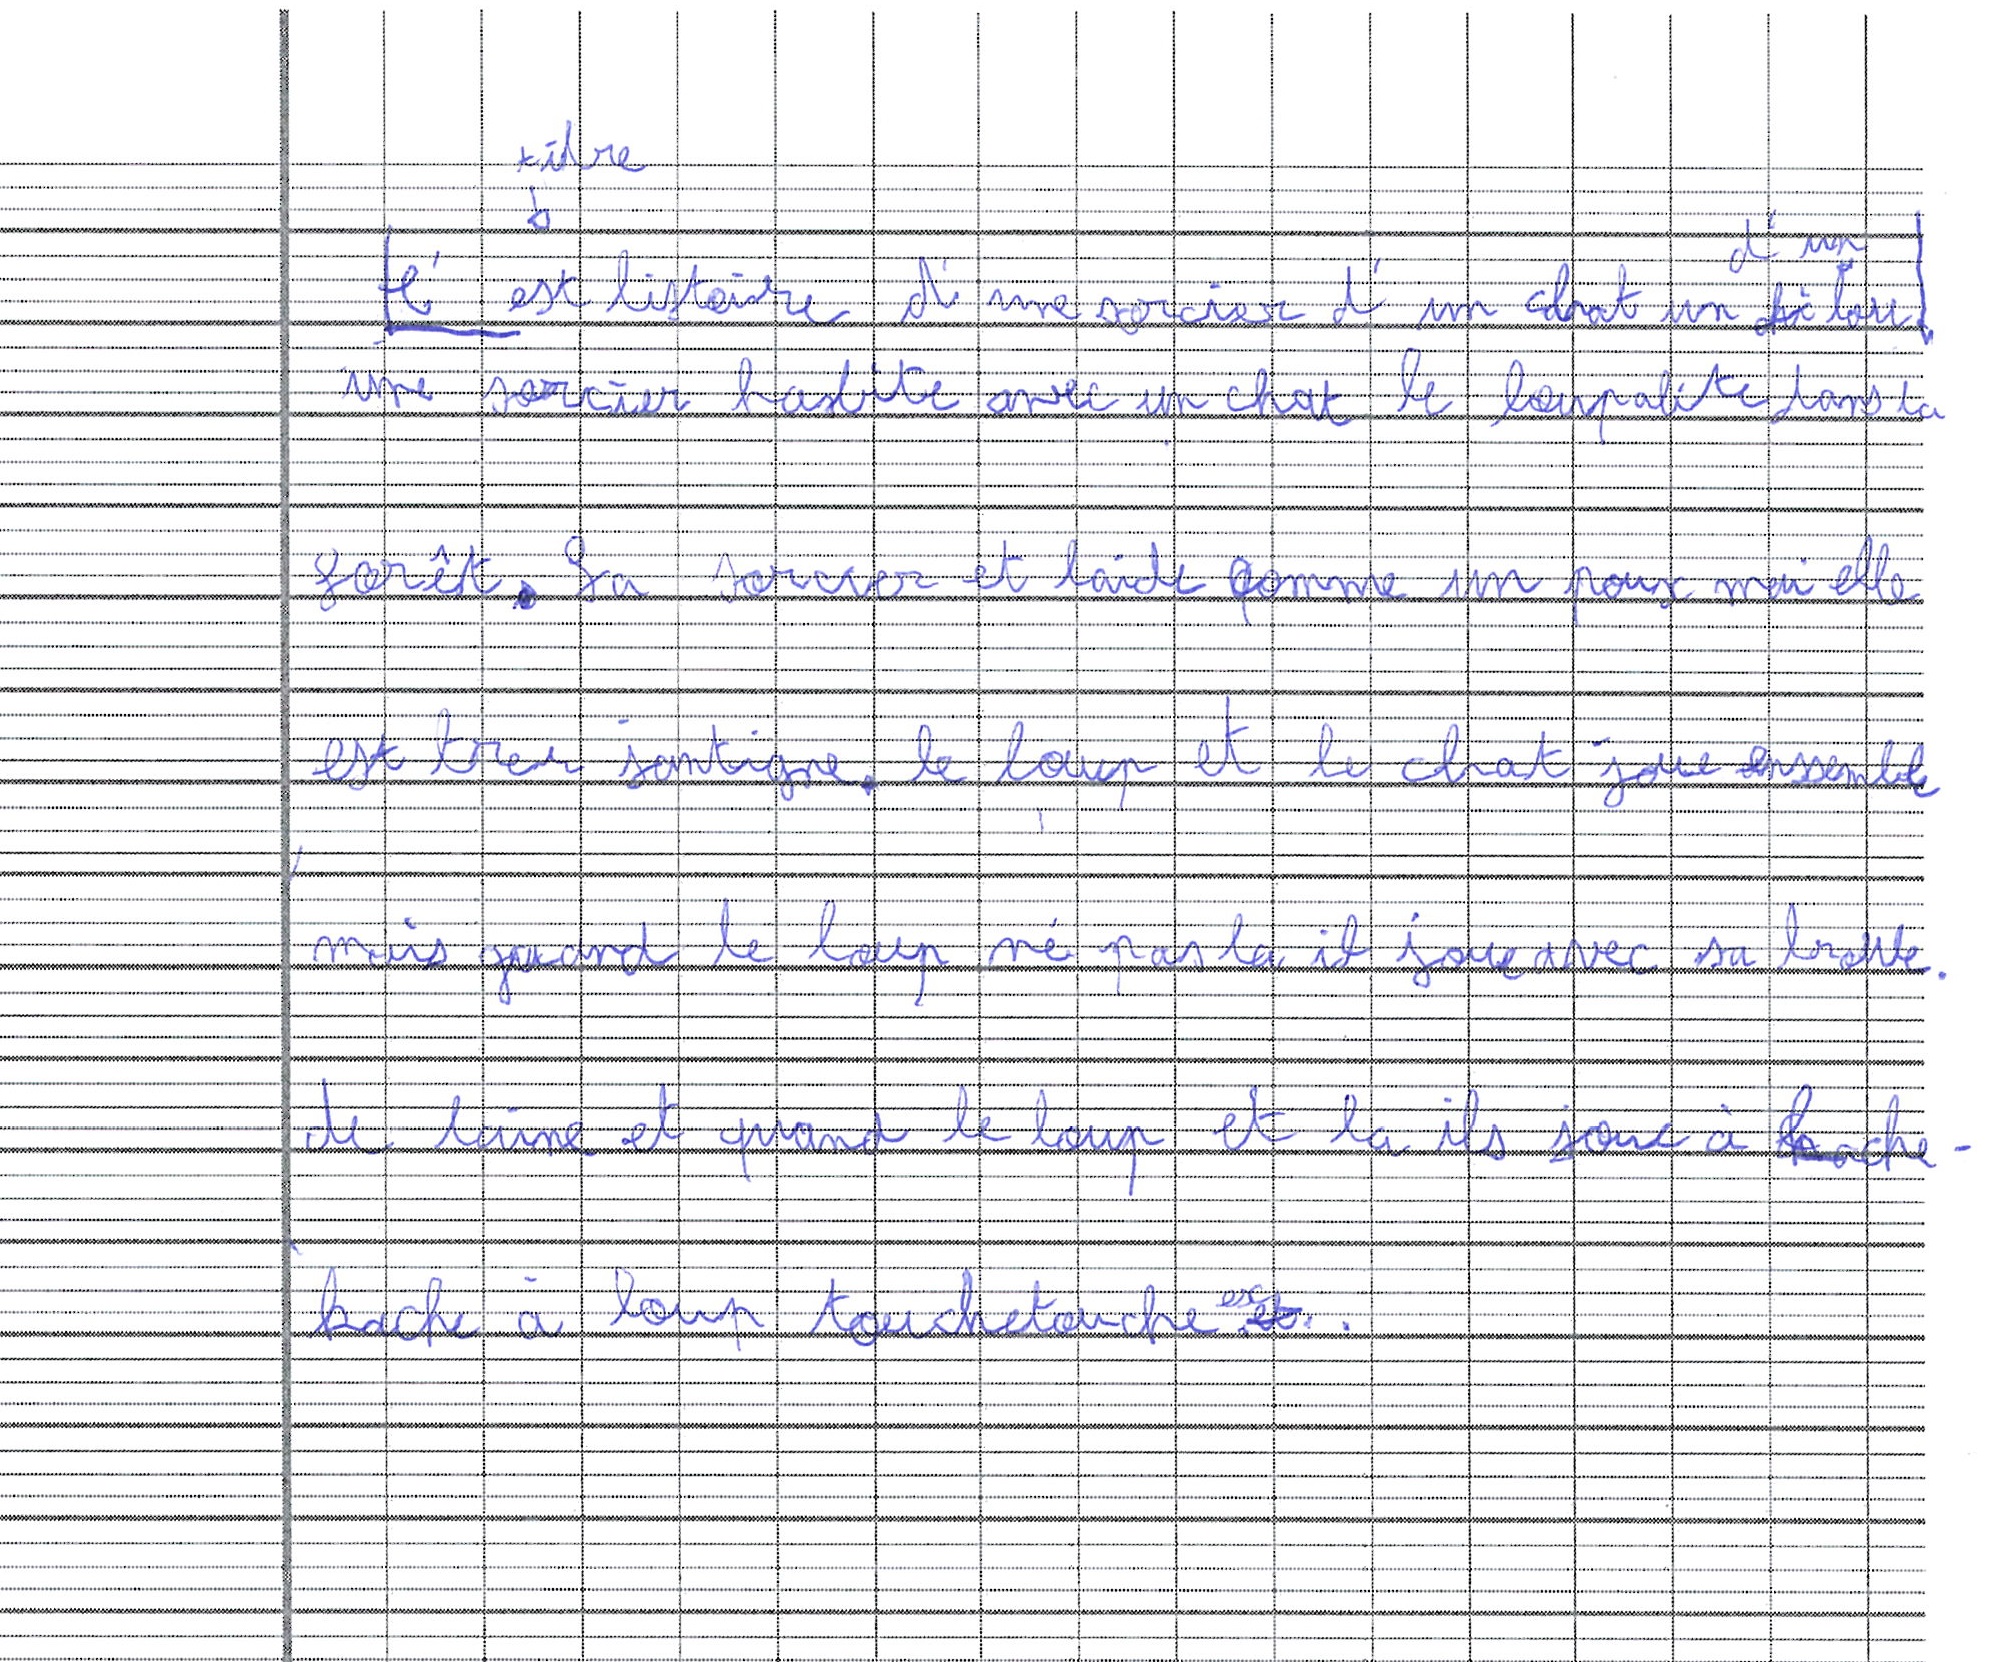 tidre
d'un
C'est listoire d'une sorcier d'un chat un lou
une sorcier habite avec un chat le loupabite dans la
forêt. La sorcier et laide comme un poux mai elle
est tres jantigne. le loup et le chat joue enssemble
mais quand le loup né pas la il joue avec sa broute.
de laine et quand le loup et la ils joue à kache-
kache à loup touchetouche ext..